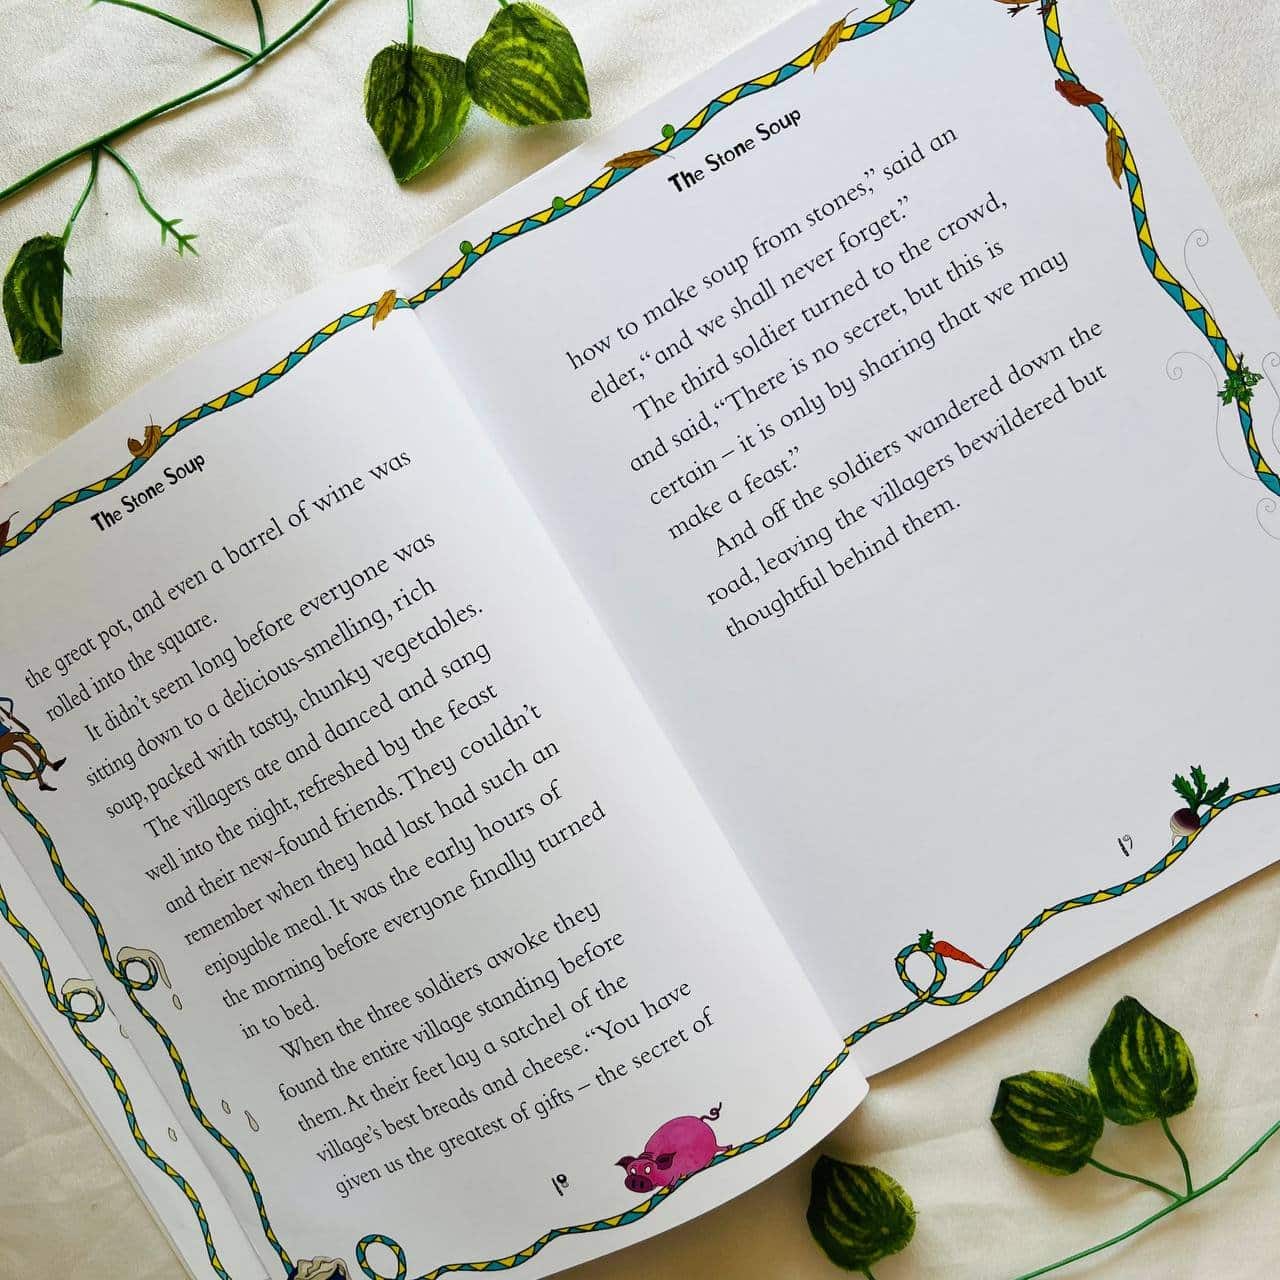 The Stone Soup
the great pot, and even a barrel of wine was
rolled into the square.
It didn't seem long before everyone was
sitting down to a delicious-smelling, rich
soup, packed with tasty, chunky vegetables.
The villagers ate and danced and sang
well into the night, refreshed by the feast
and their new-found friends. They couldn't
remember when they had last had such an
enjoyable meal. It was the early hours of
the morning before everyone finally turned
in to bed.
When the three soldiers awoke they
found the entire village standing before
them. At their feet lay a satchel of the
village's best breads and cheese. “You have
given us the greatest of gifts – the secret of
18
The Stone Soup
how to make soup from stones,” said an
elder, “and we shall never forget.”
The third soldier turned to the crowd,
and said, “There is no secret, but this is
certain – it is only by sharing that we may
make a feast.”
And off the soldiers wandered down the
road, leaving the villagers bewildered but
thoughtful behind them.
19